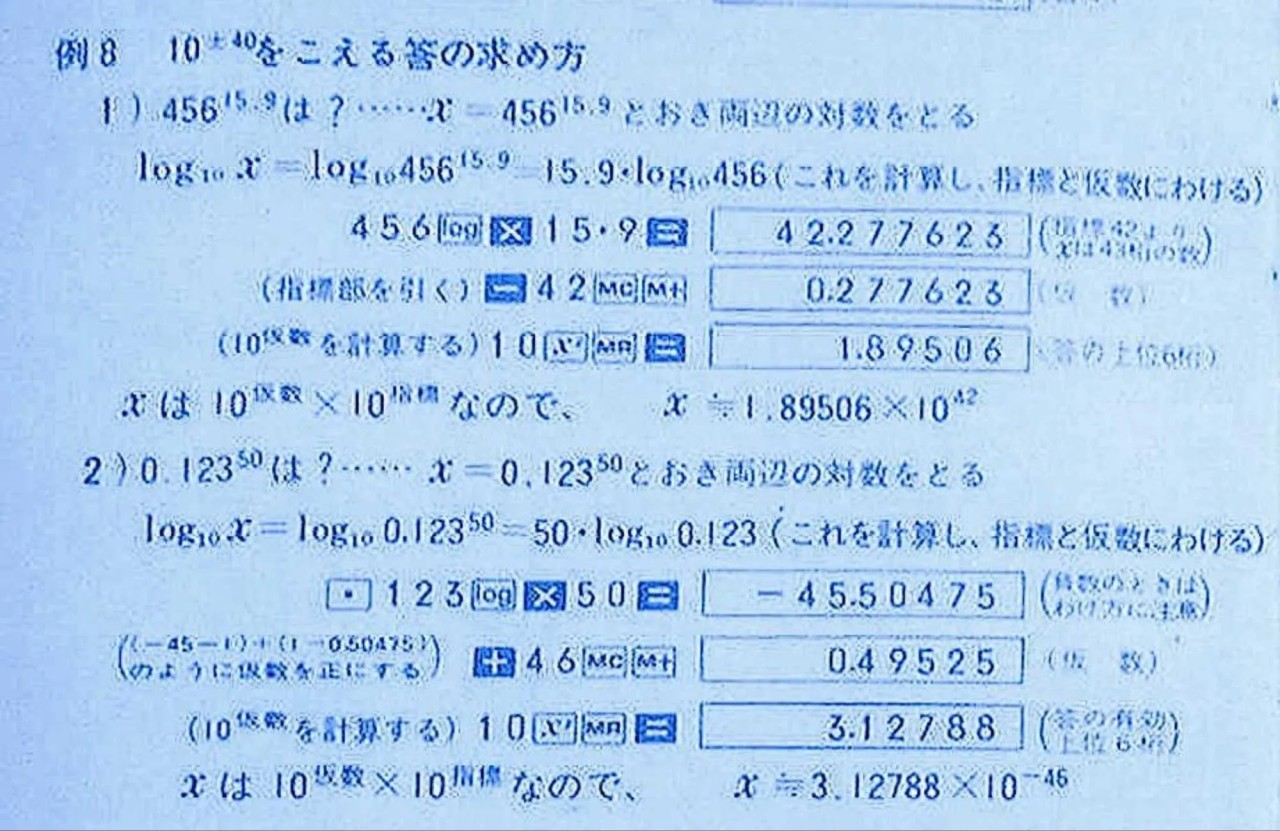 例8 10±40をこえる答の求め方
1) 456^15.9は?……x=456^15.9とおき両辺の対数をとる
log₁₀x=log₁₀456^15.9=15.9·log₁₀456(これを計算し、指標と仮数にわける)
456 log × 15·9 = 42.277623 (指標42より xは43桁の数)
(指標部を引く) − 42 MC M+ 0.277623 (仮 数)
(10^仮数を計算する) 10 xʸ MR = 1.89506 (答の上位6桁)
xは10^仮数×10^指標なので、 x≒1.89506×10^42
2) 0.123^50は?…… x=0.123^50とおき両辺の対数をとる
log₁₀x=log₁₀0.123^50=50·log₁₀0.123(これを計算し、指標と仮数にわける)
· 123 log × 50 = −45.50475 (負数のときは わけ方に注意)
((−45−1)+(1−0.50475) のように仮数を正にする) + 46 MC M+ 0.49525 (仮 数)
(10^仮数を計算する) 10 xʸ MR = 3.12788 (答の有効 上位6桁)
xは10^仮数×10^指標なので、 x≒3.12788×10^−46